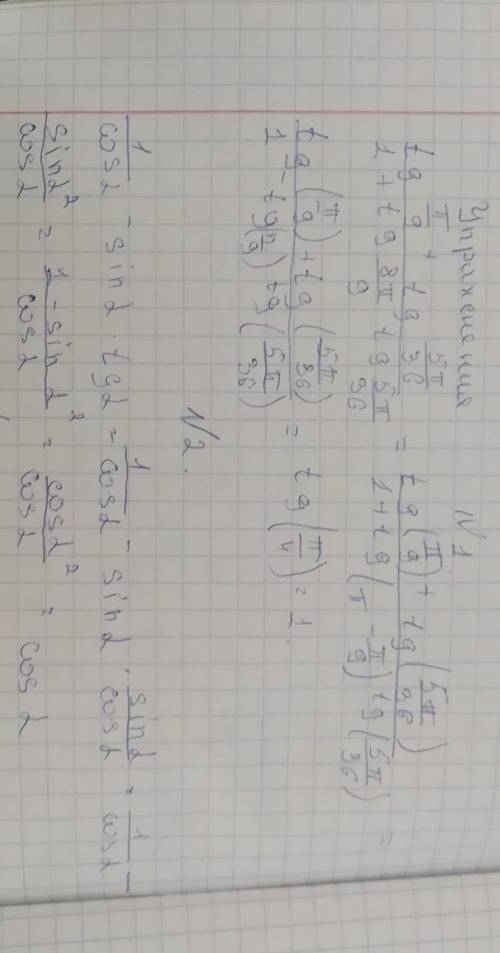 Упражнения №1
(tg π/9 + tg 5π/36)/(1 + tg 8π/9 tg 5π/36) = (tg(π/9) + tg(5π/36))/(1 + tg(π - π/9) tg(5π/36)) =
(tg(π/9) + tg(5π/36))/(1 - tg(π/9) tg(5π/36)) = tg(π/4) = 1.
№2.
1/cos α - sin α · tg α = 1/cos α - sin α · sin α/cos α = 1/cos α -
sin α²/cos α = (1 - sin α²)/cos α = cos α²/cos α = cos α